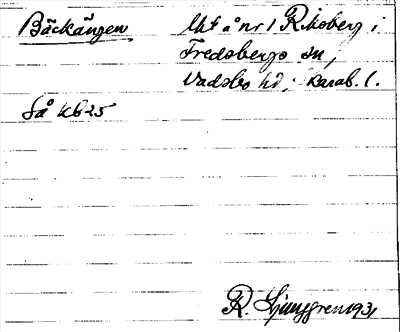 Bäckängen Uht å nr 1 Riksberg i
Fredsbergs sn,
Vadsbo hd, Skarab. l.
Så kb 25
R. Ljunggren 1931